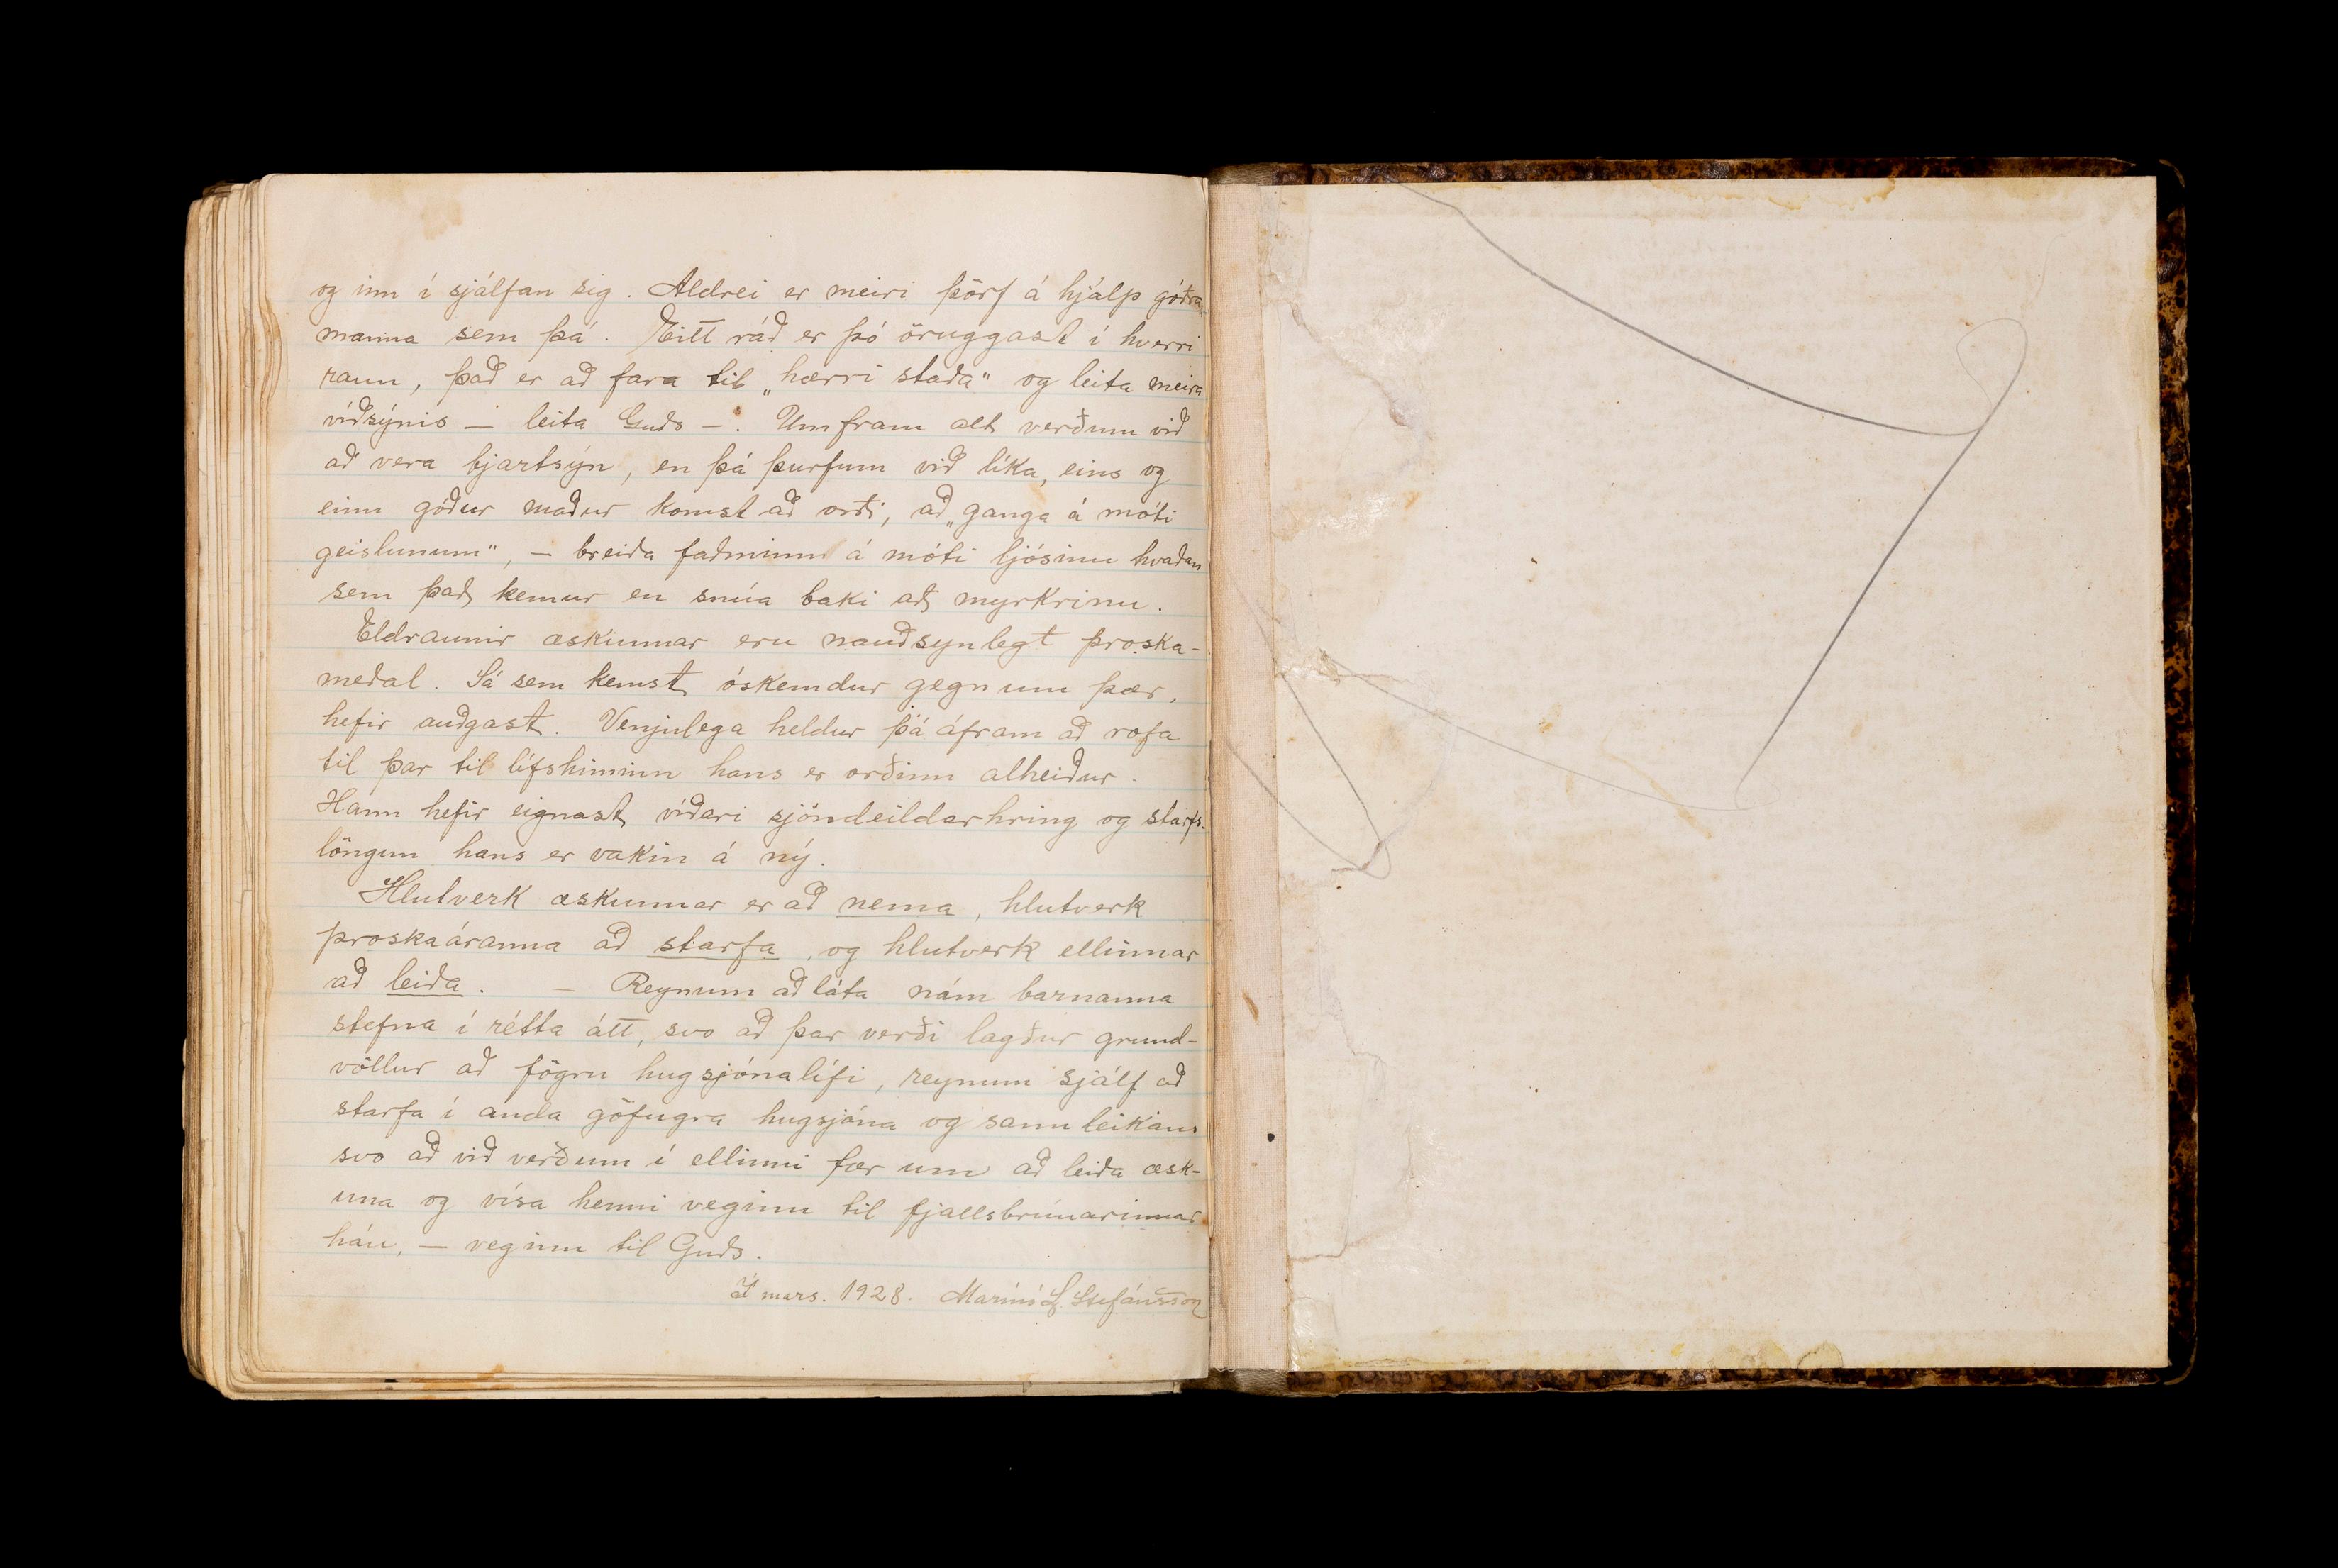 og inn í sjálfan sig. Aldrei er meiri þörf á hjálp góðra
manna sem þá. Eitt ráð er þó öruggast í hverri
raun, það er að fara til „hærri staða" og leita meira
víðsýnis — leita Guðs —. Umfram alt verðum við
að vera bjartsýn, en þá þurfum við líka, eins og
einn góður maður komst að orði, að „ganga á móti
geislunum", — breiða faðminn á móti ljósinu hvaðan
sem það kemur en snúa baki að myrkrinu.
Eldraunir æskunnar eru nauðsynlegt þroska-
meðal. Sá sem kemst óskemdur gegnum þær,
hefir auðgast. Venjulega heldur þá áfram að rofa
til þar til lífshiminn hans er orðinn alheiður.
Hann hefir eignast víðari sjóndeildarhring og starfs-
löngun hans er vakin á ný.
Hlutverk æskunnar er að nema, hlutverk
þroskaáranna að starfa, og hlutverk ellinnar
að leiða. — Reynum að láta nám barnanna
stefna í rétta átt, svo að þar verði lagður grund-
völlur að fögru hugsjónalífi, reynum sjálf að
starfa í anda göfugra hugsjóna og sannleikans
svo að við verðum í ellinni fær um að leiða æsk-
una og vísa henni veginn til fjallsbrúnarinnar
háu, — veginn til Guðs.
Í mars. 1928. Marinó L. Stefánsson